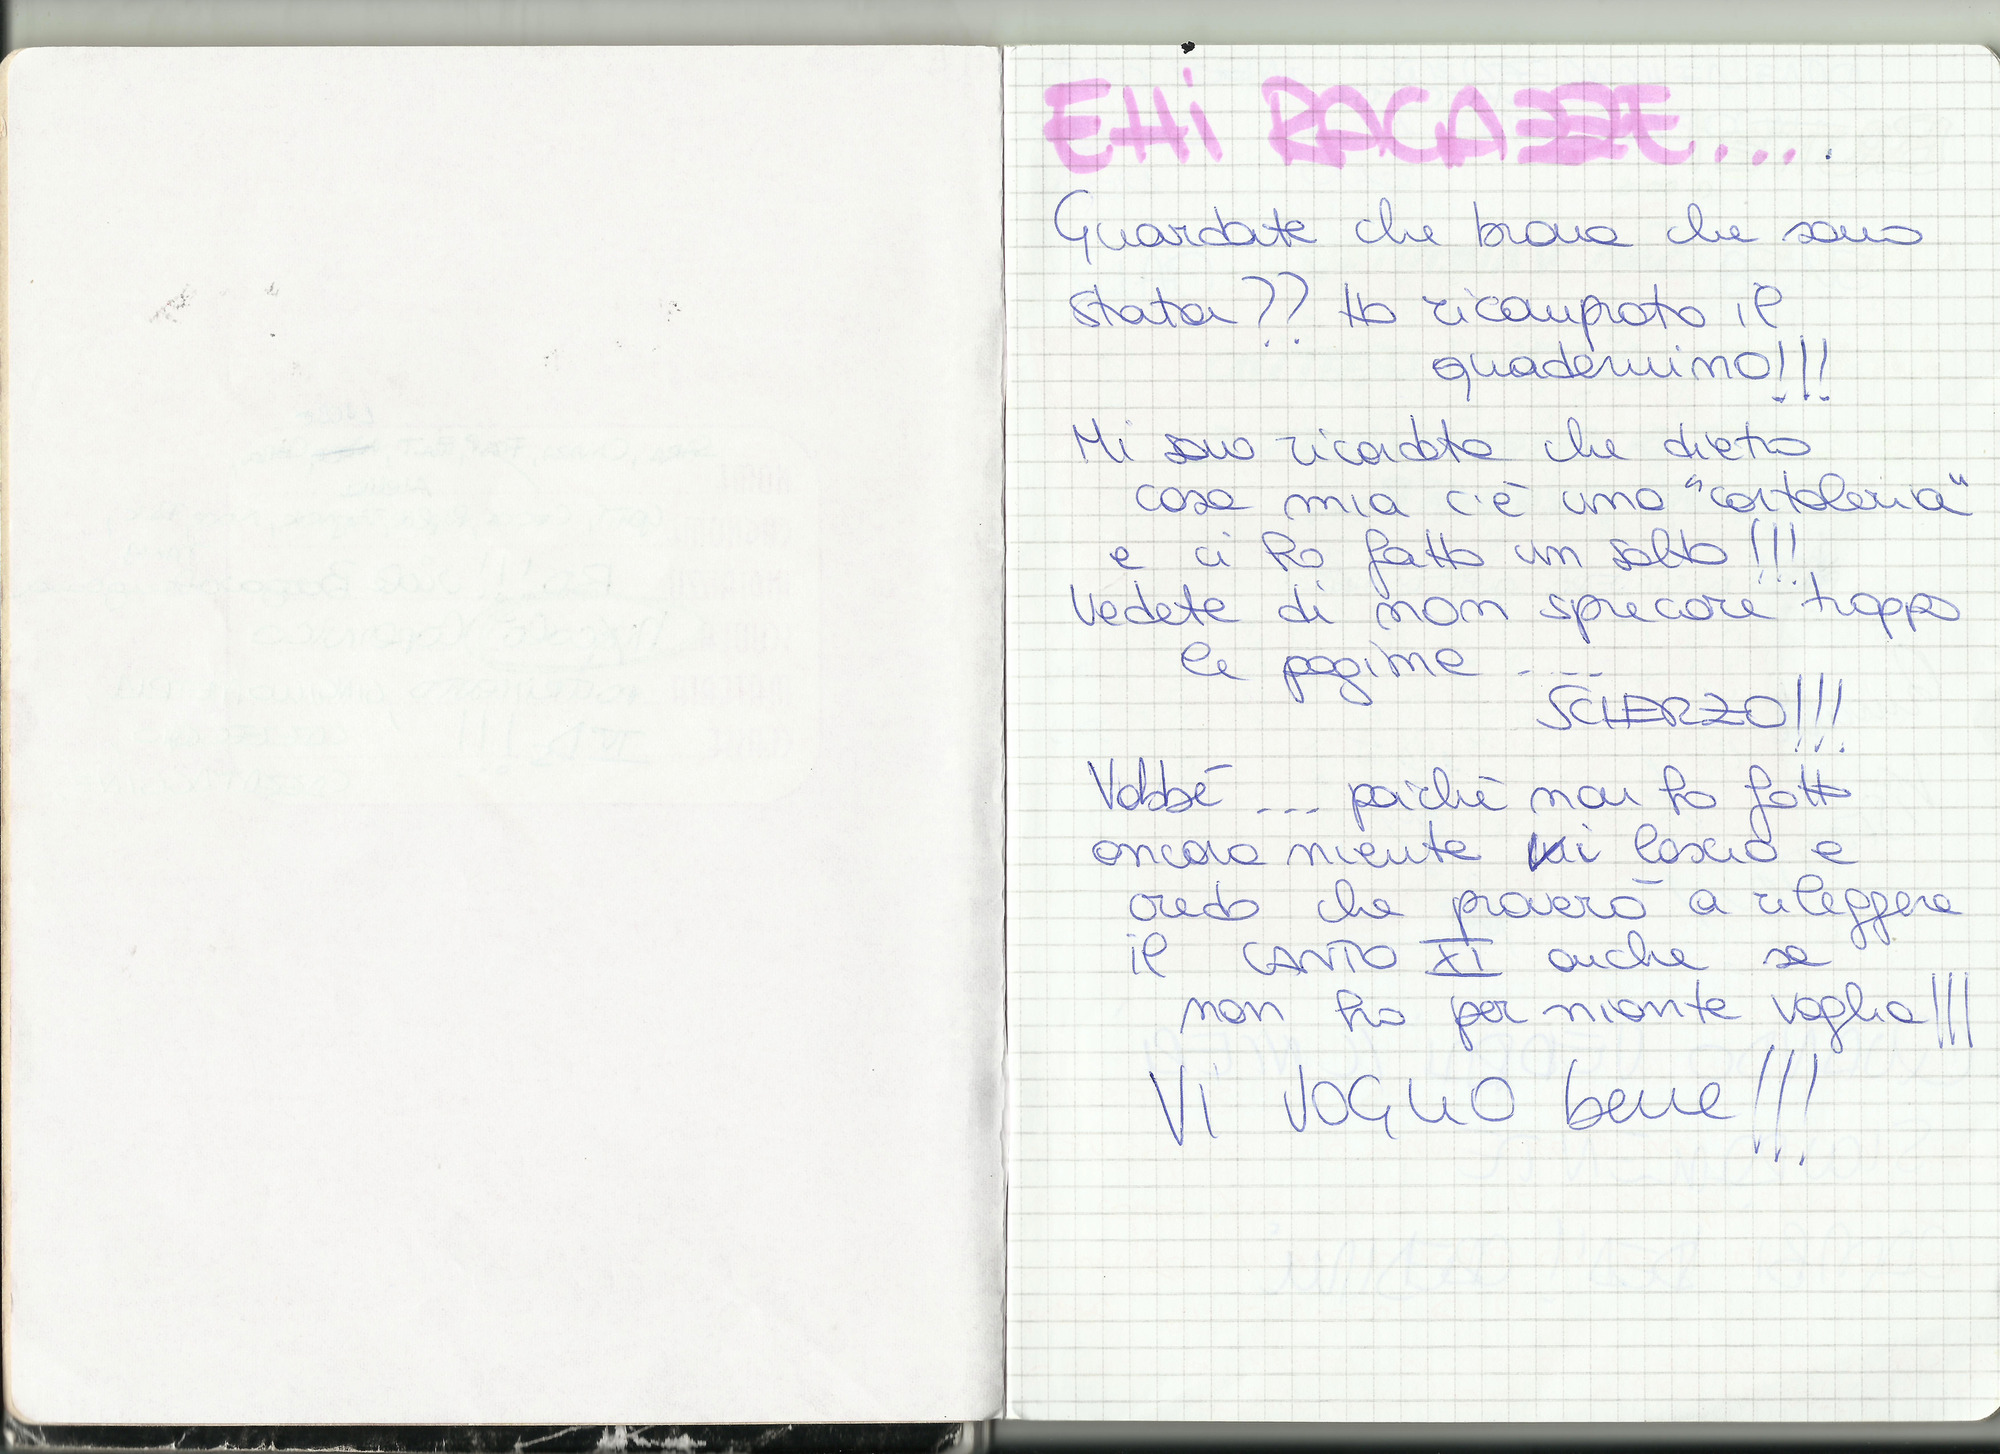 EHI RAGAZZE....
Guardate che brava che sono
stata?? Ho ricomprato il
quadernino!!!
Mi sono ricordata che dietro
casa mia c'è una "cartoleria"
e ci ho fatto un salto!!!
Vedete di non sprecare troppo
le pagine ....
SCHERZO!!!
Vabbé ... poiché non ho fatto
ancora niente vi lascio e
credo che proverò a rileggere
il CANTO XI anche se
non ho per niente voglia!!!
VI VOGLIO bene!!!